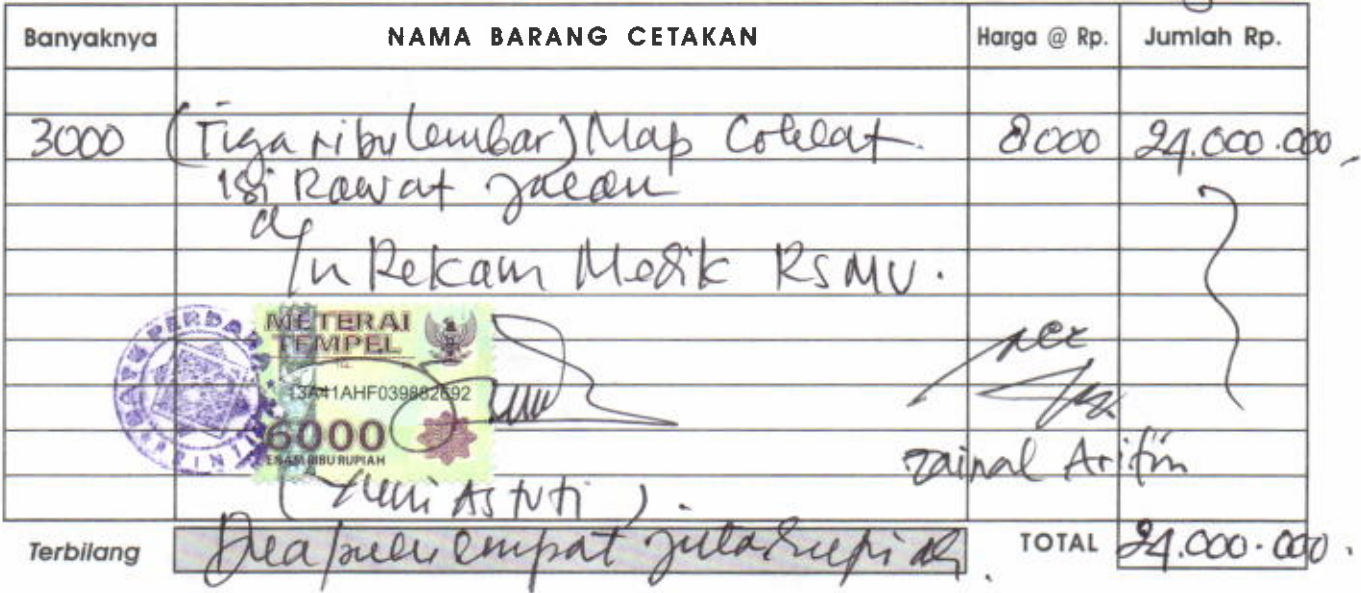 Banyaknya NAMA BARANG CETAKAN Harga @ Rp. Jumlah Rp.
3000 (Tiga ribu lembar) Map Coklat. 8000 24.000.000,
isi Rawat Jalan
Rekam Medik RSMV.
METERAI
TEMPEL
13A41AHF039882692
6000
ENAM RIBU RUPIAH
acc
Zainal Arifin
(Yuni Astuti).
Terbilang Dua puluh empat juta rupiah. TOTAL 24.000.000.